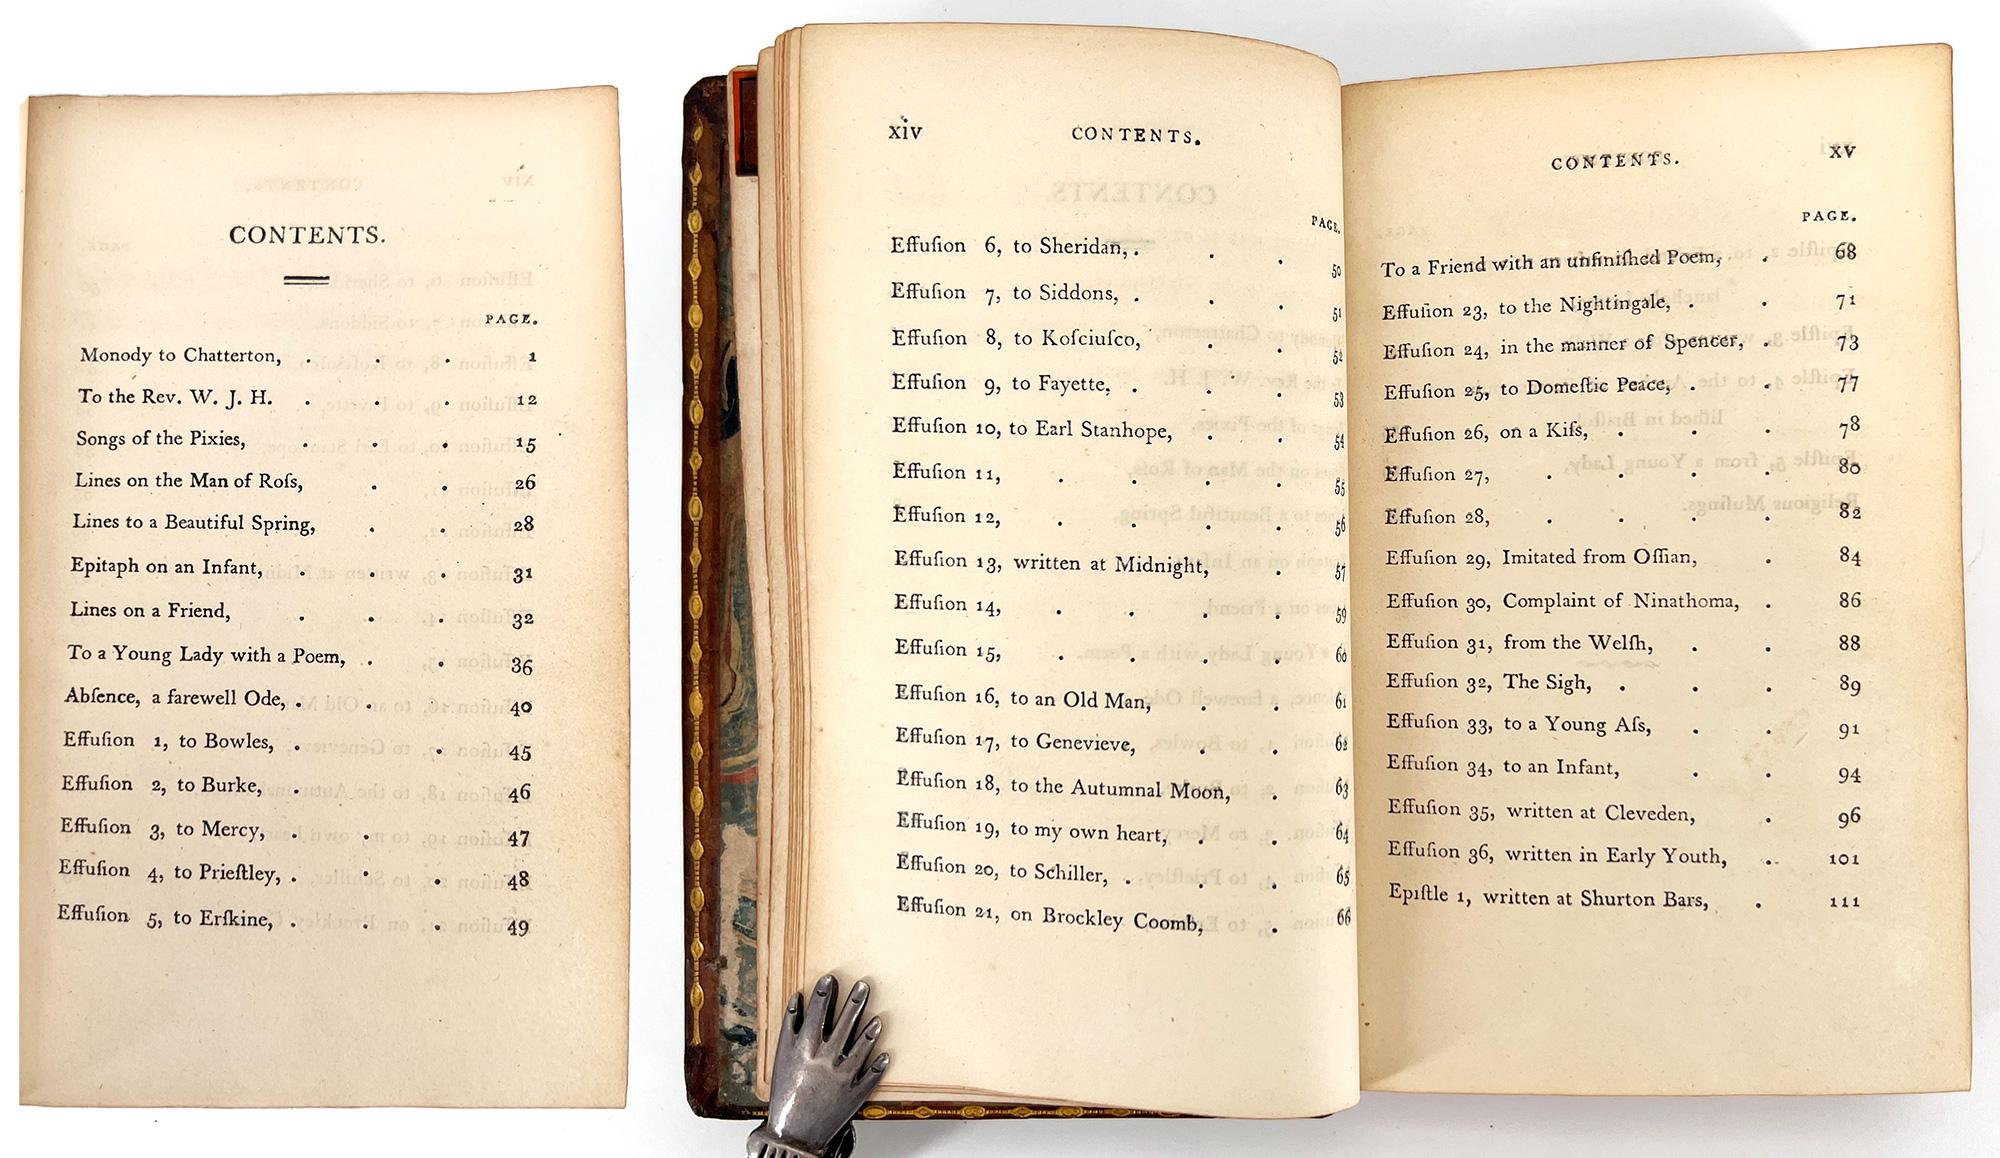 CONTENTS.
PAGE.
Monody to Chatterton, . . . 1
To the Rev. W. J. H. . . . 12
Songs of the Pixies, . . . 15
Lines on the Man of Roſs, . . 26
Lines to a Beautiful Spring, . . 28
Epitaph on an Infant, . . . 31
Lines on a Friend, . . . 32
To a Young Lady with a Poem, . . 36
Abſence, a farewell Ode, . . . 40
Effuſion 1, to Bowles, . . . 45
Effuſion 2, to Burke, . . . 46
Effuſion 3, to Mercy, . . . 47
Effuſion 4, to Prieſtley, . . . 48
Effuſion 5, to Erſkine, . . . 49
xiv CONTENTS.
PAGE.
Effuſion 6, to Sheridan, . . . 50
Effuſion 7, to Siddons, . . . 51
Effuſion 8, to Koſciuſco, . . 52
Effuſion 9, to Fayette, . . . 53
Effuſion 10, to Earl Stanhope, . . 54
Effuſion 11, . . . . 55
Effuſion 12, . . . . 56
Effuſion 13, written at Midnight, . 57
Effuſion 14, . . . . 59
Effuſion 15, . . . . 60
Effuſion 16, to an Old Man, . . 61
Effuſion 17, to Genevieve, . . 62
Effuſion 18, to the Autumnal Moon, . 63
Effuſion 19, to my own heart, . . 64
Effuſion 20, to Schiller, . . . 65
Effuſion 21, on Brockley Coomb, . 66
CONTENTS. XV
PAGE.
To a Friend with an unfiniſhed Poem, . 68
Effuſion 23, to the Nightingale, . . 71
Effuſion 24, in the manner of Spencer, . 73
Effuſion 25, to Domeſtic Peace, . . 77
Effuſion 26, on a Kiſs, . . . 78
Effuſion 27, . . . . 80
Effuſion 28, . . . . 82
Effuſion 29, Imitated from Oſſian, . 84
Effuſion 30, Complaint of Ninathoma, . 86
Effuſion 31, from the Welſh, . . 88
Effuſion 32, The Sigh, . . . 89
Effuſion 33, to a Young Aſs, . . 91
Effuſion 34, to an Infant, . . 94
Effuſion 35, written at Cleveden, . 96
Effuſion 36, written in Early Youth, . 101
Epiſtle 1, written at Shurton Bars, . 111